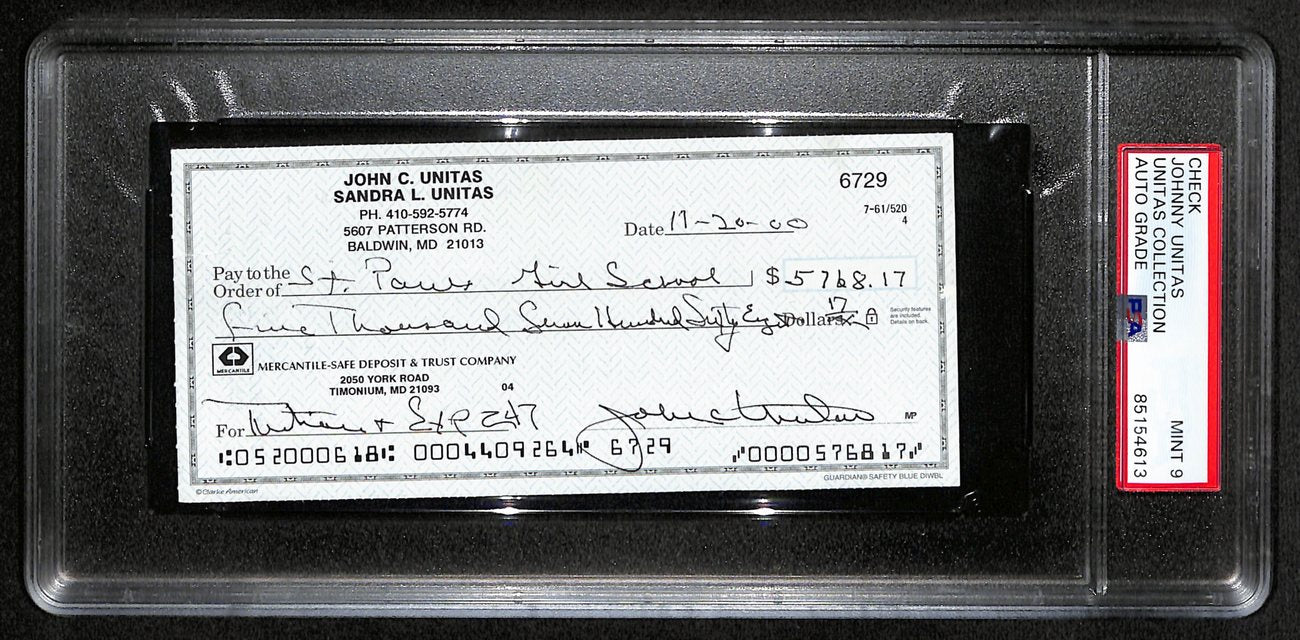 JOHN C. UNITAS
SANDRA L. UNITAS
PH. 410-592-5774
5607 PATTERSON RD.
BALDWIN, MD 21013
6729
7-61/520
4
Date 11-20-00
Pay to the
Order of St. Pauls Girl School $ 5768.17
Five Thousand Seven Hundred Sixty Eight Dollars 17
Security features
are included.
Details on back.
MERCANTILE
MERCANTILE-SAFE DEPOSIT & TRUST COMPANY
2050 YORK ROAD
TIMONIUM, MD 21093 04
For Tuition + Exp 247 John C Unitas MP
⑆052000618⑆ 0004409264⑈ 6729 ⑈0000576817⑈
© Clarke American
GUARDIAN® SAFETY BLUE DIWBL
CHECK
JOHNNY UNITAS
UNITAS COLLECTION
AUTO GRADE
MINT 9
85154613
PSA